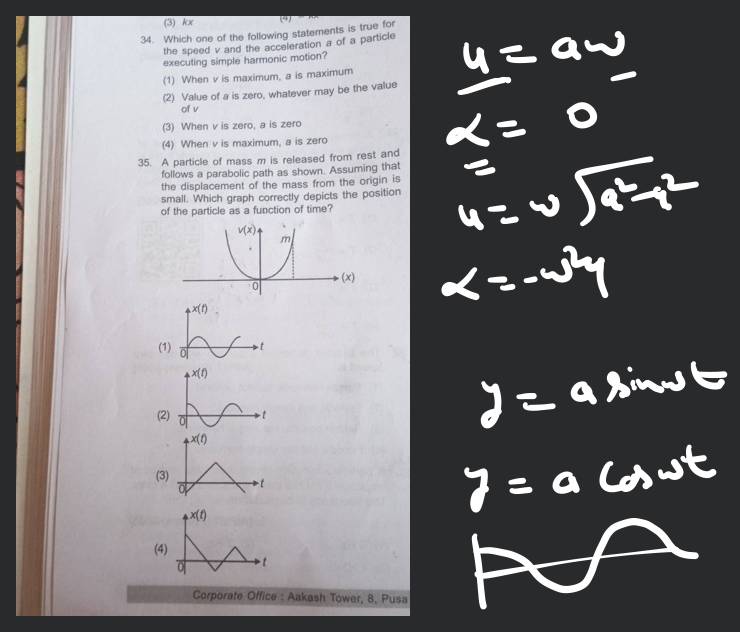 (3) kx
34. Which one of the following statements is true for
the speed v and the acceleration a of a particle
executing simple harmonic motion?
(1) When v is maximum, a is maximum
(2) Value of a is zero, whatever may be the value
of v
(3) When v is zero, a is zero
(4) When v is maximum, a is zero
35. A particle of mass m is released from rest and
follows a parabolic path as shown. Assuming that
the displacement of the mass from the origin is
small. Which graph correctly depicts the position
of the particle as a function of time?
v(x)
m
0
(x)
x(t)
(1)
0
t
x(t)
(2)
0
t
x(t)
(3)
0
t
x(t)
(4)
0
t
Corporate Office : Aakash Tower, 8, Pusa
u = aω
α = 0
u = ω √a²-y²
α = -ω²y
y = a sinωt
y = a Cosωt